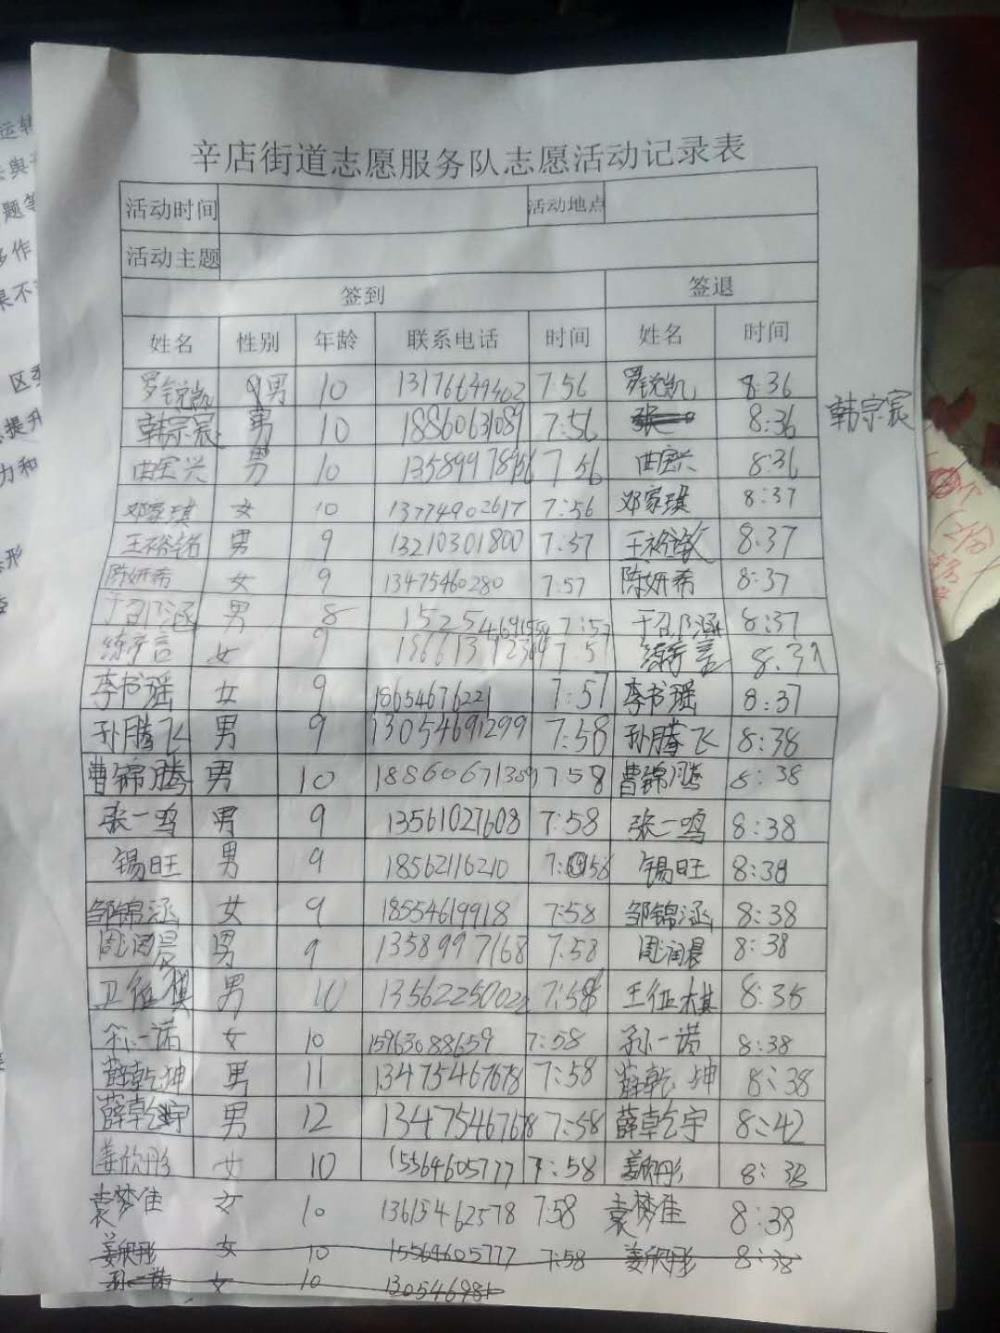 辛店街道志愿服务队志愿活动记录表
活动时间 活动地点
活动主题
签到 签退
姓名 性别 年龄 联系电话 时间 姓名 时间
罗锐凯 男 10 13176649402 7:56 罗锐凯 8:36
韩宗宸 男 10 18860631089 7:56 8:36 韩宗宸
曲宏兴 男 10 7:56 曲宏兴 8:36
邓家琪 女 10 13774902617 7:56 邓家琪 8:37
男 9 13210301800 7:57 8:37
陈妍希 女 9 13475460280 7:57 陈妍希 8:37
男 8 7:57 8:37
女 9 7:57 8:37
李书瑶 女 9 18654676221 7:57 李书瑶 8:37
孙腾飞 男 9 13054691299 7:58 孙腾飞 8:38
曹锦腾 男 10 7:58 曹锦腾 8:38
张一鸣 男 9 13561027608 7:58 张一鸣 8:38
锡旺 男 9 18562116210 锡旺 8:38
邹锦涵 女 9 18554619918 7:58 邹锦涵 8:38
周润晨 男 9 1358997168 7:58 周润晨 8:38
男 10 7:58
孙一诺 女 10 15963088659 7:58 孙一诺 8:38
薛乾坤 男 11 13475467678 7:58 薛乾坤 8:38
薛乾宇 男 12 13475467678 7:58 薛乾宇 8:42
姜欣彤 女 10 15564605777 7:58 姜欣彤 8:38
袁梦佳 女 10 13615462578 7:58 袁梦佳 8:38
姜欣彤 女 10 15564605777 7:58 姜欣彤 8:38
孙一诺 女 10